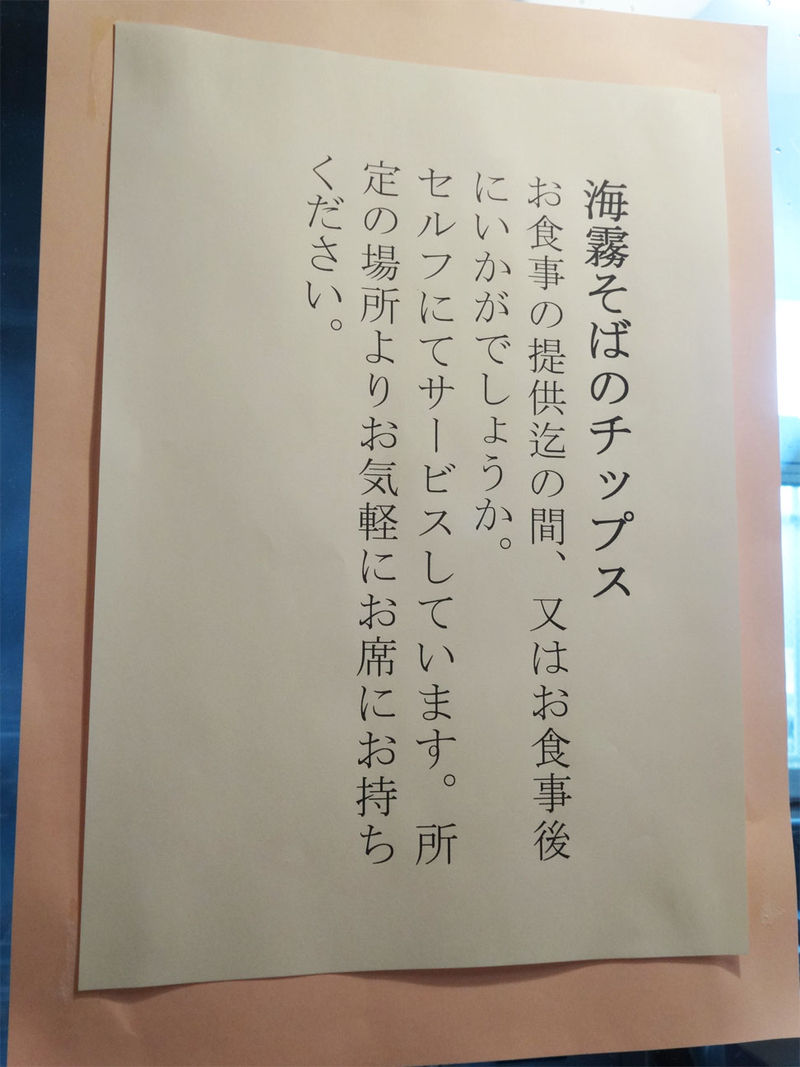 海霧そばのチップス
お食事の提供迄の間、又はお食事後
にいかがでしょうか。
セルフにてサービスしています。所
定の場所よりお気軽にお席にお持ち
ください。